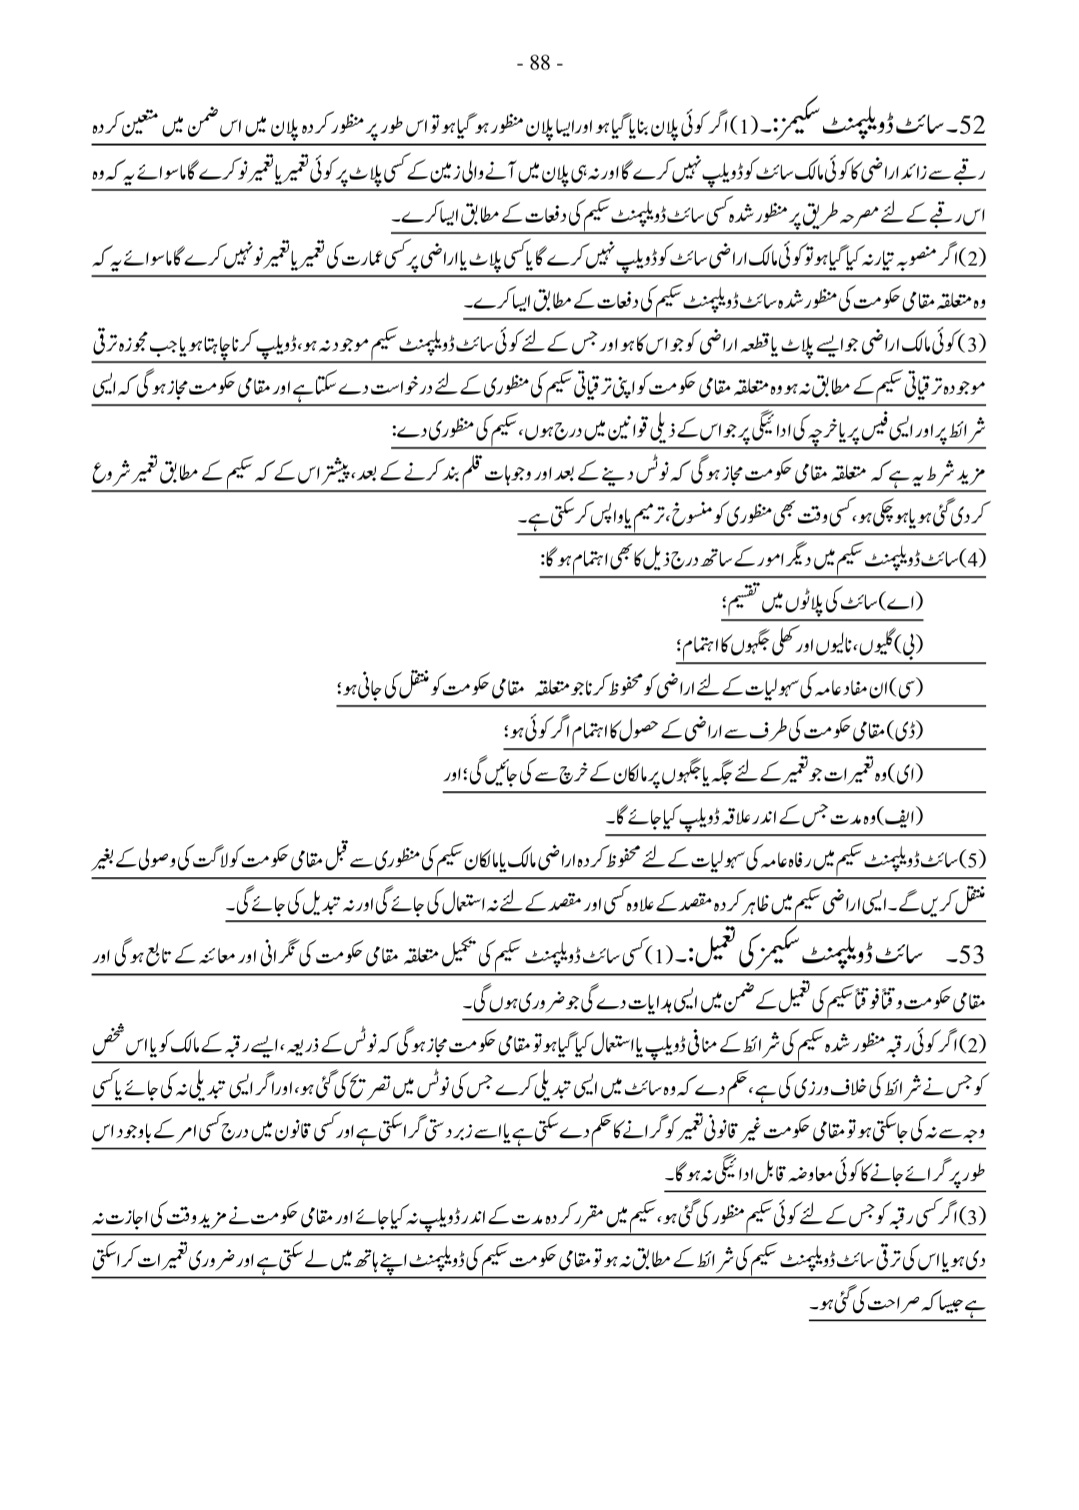 - 88 -
52۔ سائٹ ڈویلپمنٹ سکیمز:۔ (1) اگر کوئی پلان بنایا گیا ہو اور ایسا پلان منظور ہو گیا ہو تو اس طور پر منظور کردہ پلان میں اس ضمن میں متعین کردہ
رقبے سے زائد اراضی کا کوئی مالک سائٹ کو ڈویلپ نہیں کرے گا اور نہ ہی پلان میں آنے والی زمین کے کسی پلاٹ پر کوئی تعمیر یا تعمیر نو کرے گا ماسوائے یہ کہ وہ
اس رقبے کے لئے مصرحہ طریق پر منظور شدہ کسی سائٹ ڈویلپمنٹ سکیم کی دفعات کے مطابق ایسا کرے۔
(2) اگر منصوبہ تیار نہ کیا گیا ہو تو کوئی مالک اراضی سائٹ کو ڈویلپ نہیں کرے گا یا کسی پلاٹ یا اراضی پر کسی عمارت کی تعمیر یا تعمیر نو نہیں کرے گا ماسوائے یہ کہ
وہ متعلقہ مقامی حکومت کی منظور شدہ سائٹ ڈویلپمنٹ سکیم کی دفعات کے مطابق ایسا کرے۔
(3) کوئی مالک اراضی جو ایسے پلاٹ یا قطعہ اراضی کو جو اس کا ہو اور جس کے لئے کوئی سائٹ ڈویلپمنٹ سکیم موجود نہ ہو، ڈویلپ کرنا چاہتا ہو یا جب مجوزہ ترقی
موجودہ ترقیاتی سکیم کے مطابق نہ ہو وہ متعلقہ مقامی حکومت کو اپنی ترقیاتی سکیم کی منظوری کے لئے درخواست دے سکتا ہے اور مقامی حکومت مجاز ہو گی کہ ایسی
شرائط پر اور ایسی فیس پر یا خرچہ کی ادائیگی پر جو اس کے ذیلی قوانین میں درج ہوں، سکیم کی منظوری دے:
مزید شرط یہ ہے کہ متعلقہ مقامی حکومت مجاز ہو گی کہ نوٹس دینے کے بعد اور وجوہات قلم بند کرنے کے بعد، پیشتر اس کے کہ سکیم کے مطابق تعمیر شروع
کر دی گئی ہو یا ہو چکی ہو، کسی وقت بھی منظوری کو منسوخ، ترمیم یا واپس کر سکتی ہے۔
(4) سائٹ ڈویلپمنٹ سکیم میں دیگر امور کے ساتھ درج ذیل کا بھی اہتمام ہو گا:
(اے) سائٹ کی پلاٹوں میں تقسیم؛
(بی) گلیوں، نالیوں اور کھلی جگہوں کا اہتمام؛
(سی) ان مفاد عامہ کی سہولیات کے لئے اراضی کو محفوظ کرنا جو متعلقہ مقامی حکومت کو منتقل کی جانی ہو؛
(ڈی) مقامی حکومت کی طرف سے اراضی کے حصول کا اہتمام اگر کوئی ہو؛
(ای) وہ تعمیرات جو تعمیر کے لئے جگہ یا جگہوں پر مالکان کے خرچ سے کی جائیں گی؛ اور
(ایف) وہ مدت جس کے اندر علاقہ ڈویلپ کیا جائے گا۔
(5) سائٹ ڈویلپمنٹ سکیم میں رفاہ عامہ کی سہولیات کے لئے محفوظ کردہ اراضی مالک یا مالکان سکیم کی منظوری سے قبل مقامی حکومت کو لاگت کی وصولی کے بغیر
منتقل کریں گے۔ ایسی اراضی سکیم میں ظاہر کردہ مقصد کے علاوہ کسی اور مقصد کے لئے نہ استعمال کی جائے گی اور نہ تبدیل کی جائے گی۔
53۔ سائٹ ڈویلپمنٹ سکیمز کی تعمیل:۔ (1) کسی سائٹ ڈویلپمنٹ سکیم کی تکمیل متعلقہ مقامی حکومت کی نگرانی اور معائنہ کے تابع ہو گی اور
مقامی حکومت وقتاً فوقتاً سکیم کی تعمیل کے ضمن میں ایسی ہدایات دے گی جو ضروری ہوں گی۔
(2) اگر کوئی رقبہ منظور شدہ سکیم کی شرائط کے منافی ڈویلپ یا استعمال کیا گیا ہو تو مقامی حکومت مجاز ہو گی کہ نوٹس کے ذریعہ، ایسے رقبہ کے مالک کو یا اس شخص
کو جس نے شرائط کی خلاف ورزی کی ہے، حکم دے کہ وہ سائٹ میں ایسی تبدیلی کرے جس کی نوٹس میں تصریح کی گئی ہو، اور اگر ایسی تبدیلی نہ کی جائے یا کسی
وجہ سے نہ کی جا سکتی ہو تو مقامی حکومت غیر قانونی تعمیر کو گرانے کا حکم دے سکتی ہے یا اسے زبردستی گرا سکتی ہے اور کسی قانون میں درج کسی امر کے باوجود اس
طور پر گرائے جانے کا کوئی معاوضہ قابل ادائیگی نہ ہو گا۔
(3) اگر کسی رقبہ کو جس کے لئے کوئی سکیم منظور کی گئی ہو، سکیم میں مقرر کردہ مدت کے اندر ڈویلپ نہ کیا جائے اور مقامی حکومت نے مزید وقت کی اجازت نہ
دی ہو یا اس کی ترقی سائٹ ڈویلپمنٹ سکیم کی شرائط کے مطابق نہ ہو تو مقامی حکومت سکیم کی ڈویلپمنٹ اپنے ہاتھ میں لے سکتی ہے اور ضروری تعمیرات کرا سکتی
ہے جیسا کہ صراحت کی گئی ہو۔